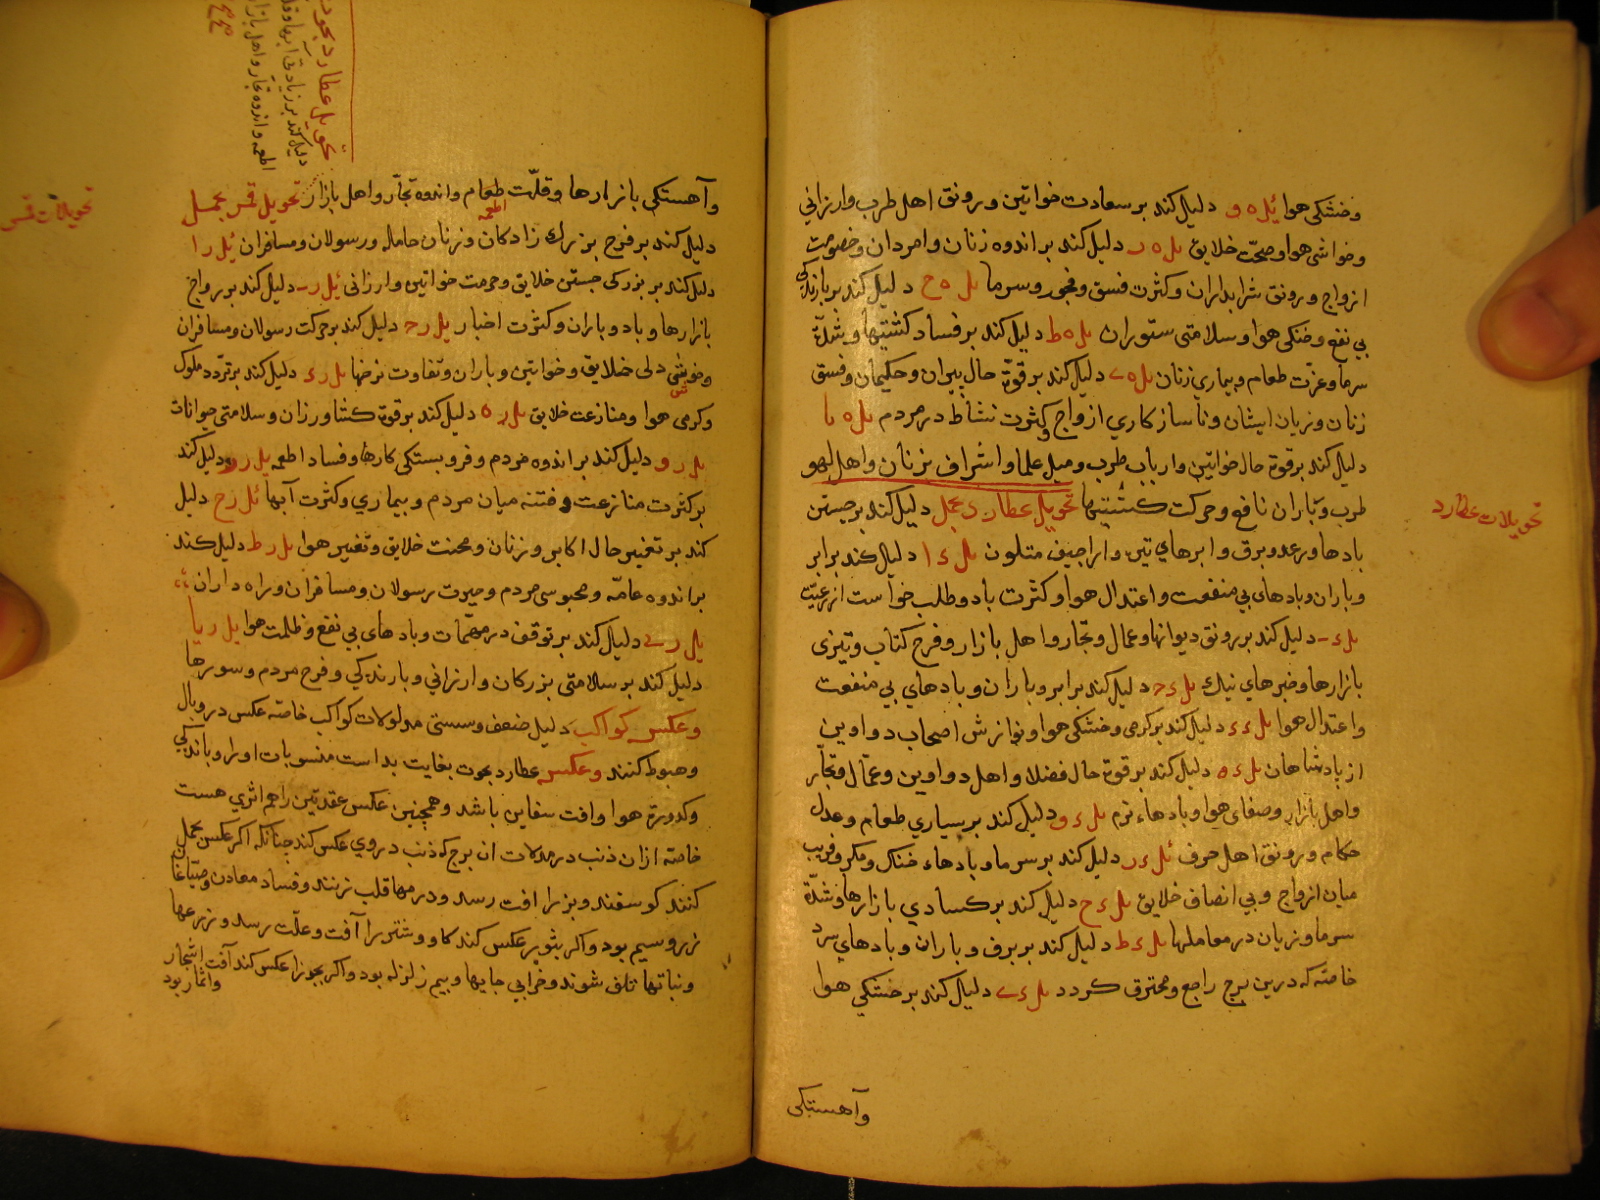 وخشکی هوا یل ه و دلیل کند بر سعادت خواتین و رونق اهل طرب وارزانی
وخواشی هوا وصحّت خلایق یل ه ر دلیل کند بر اندوه زنان وامردان وخصومت
ازواج ورونق شرابداران وکثرت فسق وفجور وسرما یل ه ح دلیل کند بر بارندکی
بی نفع وخنکی هوا وسلامتی ستوران یل ه ط دلیل کند بر فساد کشتیها وشدّة
سرما وعزت طعام وبیماری زنان یل ه ی دلیل کند بر قوة حال پیران وحکیمان وفسق
زنان وزیان ایشان وناسازکاری ازواج وکثرت نشاط در مردم یل ه یا
دلیل کند بر قوة حال خواتین وارباب طرب ومیل علما واشراف بزنان واهل لهو
طرب وباران نافع وحرکت کشتیها تحویل عطارد بحمل دلیل کند بر جستن
بادها ورعد وبرق وابرهای تیره واراجیف متلون یل ء ا دلیل کند بر ابر
وباران وبادهای بی منفعت واعتدال هوا وکثرت باد وطلب خواست از رعیّت
یل ء ـ دلیل کند بر رونق دیوانها وعمال وتجّار واهل بازار وفرح کتاب وتیزی
بازارها وخبرهای نیک یل ء ح دلیل کند بر ابر وباران وبادهای بی منفعت
واعتدال هوا یل ء ء دلیل کند بر کرمی وخشکی هوا ونوازش اصحاب دواوین
از پادشاهان یل ء ه دلیل کند بر قوة حال فضلا واهل دواوین وعمّال وتجّار
واهل بازار وصفای هوا وبادهاء نرم یل ء و دلیل کند بر بسیاری طعام وعدل
حکام ورونق اهل حرف یل ء ر دلیل کند بر سرما وبادهاء خنک ومکر وفریب
میان ازواج وبی انصاف خلایق یل ء ح دلیل کند بر کسادی بازارها وشدّة
سرما وزیان در معاملها یل ء ط دلیل کند بر برف وباران وبادهای سرد
خاصّه که درین برج راجع ومحترق کردد یل ء ی دلیل کند بر خشکی هوا
وآهستکی
تحویلات عطارد
وآهستکی بازارها وقلّت طعام واندوه تجّار واهل بازار تحویل قمر بحمل
دلیل کند بر فرح بزرک زادکان وزنان حامله ورسولان ومسافران یل ر ا
دلیل کند بر بزرکی جستن خلایق وحرمت خواتین وارزانی یل ر ـ دلیل کند بر رواج
بازارها وباد وباران وکثرت اخبار یل ر ح دلیل کند بر حرکت رسولان ومسافران
وخوشی دلی خلایق وخواتین وباران وتفاوت نرخها یل ر ء دلیل کند بر تردّد ملوک
وکرمی هوا ومنازعت خلایق یل ر ه دلیل کند بر قوت کشاورزان وسلامتی حیوانات
یل ر و دلیل کند بر اندوه مردم وفروبستکی کارها وفساد اطعمه یل ر ر دلیل کند
بر کثرت منازعت وفتنه میان مردم وبیماری وکثرت آبها یل ر ح دلیل
کند بر تغییر حال اکابر وزنان ومحنت خلایق وتغییر هوا یل ر ط دلیل کند
بر اندوه عامّه ومحبوسی مردم وحیرت رسولان ومسافران وراه داران
یل ر ی دلیل کند بر توقف در مهمّات وبادهای بی نفع وظلمت هوا یل ر یا
دلیل کند بر سلامتی بزرکان وارزانی وبارندکی وفرح مردم وسورها
وعکس کواکب دلیل ضعف وسستی مدلولات کواکب خاصّه عکس در وبال
وهبوط کنند وعکس عطارد بحوت بغایت بد است منسوبات اورا وبارندکی
وکدورة هوا وافت سفاین باشد وهمچنین عکس عقدتین راهم اثری هست
خاصّه ازان ذنب در مدلات ان برج که ذنب در وی عکس کند چنانکه اکر عکس بحمل
کنند کوسفند وبز را افت رسد ودرمها قلب زنند وفساد معادن وصیّاغان
زر وسیم بود واکر بثور عکس کند کاو وشتر را آفت وعلّت رسد وزرعها
ونباتها تلف شوند وخرابی جایها وبیم زلزله بود واکر بجوزا عکس کند آفت اشجار
واثمار بود
تحویلات قمر
تحویل عطارد بحوت
دلیل کند بر زیادتی آبها
اطعمه واندوه تجار واهل بازار